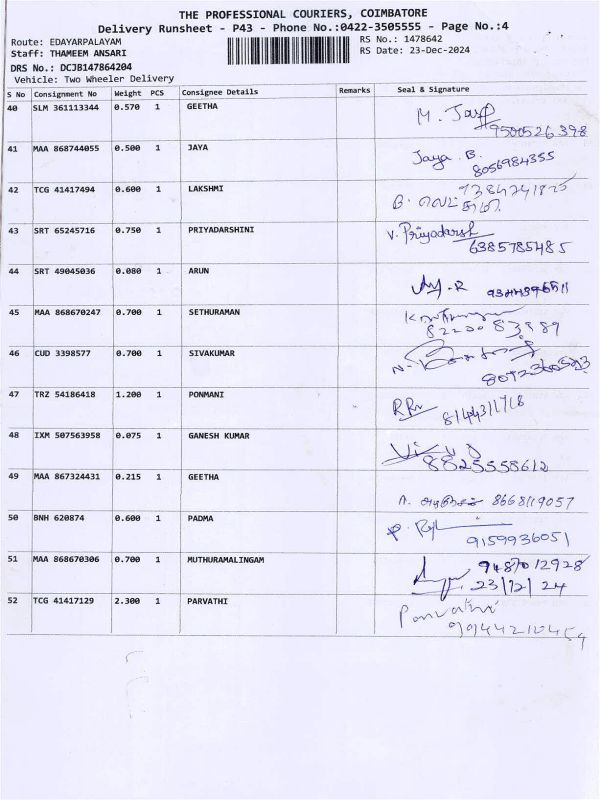 THE PROFESSIONAL COURIERS, COIMBATORE
Delivery Runsheet - P43 - Phone No.:0422-3505555 - Page No.:4
Route: EDAYARPALAYAM
RS No.: 1478642
Staff: THAMEEM ANSARI
RS Date: 23-Dec-2024
DRS No.: DCJB147864204
Vehicle: Two Wheeler Delivery
S No Consignment No Weight PCS Consignee Details Remarks Seal & Signature
40 SLM 361113344 0.570 1 GEETHA M.
9500526398
41 MAA 868744055 0.500 1 JAYA Jaya B.
8056984355
42 TCG 41417494 0.600 1 LAKSHMI
43 SRT 65245716 0.750 1 PRIYADARSHINI V. Priyadarsh
6385785485
44 SRT 49045036 0.080 1 ARUN
45 MAA 868670247 0.700 1 SETHURAMAN
46 CUD 3398577 0.700 1 SIVAKUMAR
47 TRZ 54186418 1.200 1 PONMANI
48 IXM 507563958 0.075 1 GANESH KUMAR
8825558612
49 MAA 867324431 0.215 1 GEETHA
8668119057
50 BNH 620874 0.600 1 PADMA
9159936051
51 MAA 868670306 0.700 1 MUTHURAMALINGAM 9487012928
23/12/24
52 TCG 41417129 2.300 1 PARVATHI Parvathi
9944210454